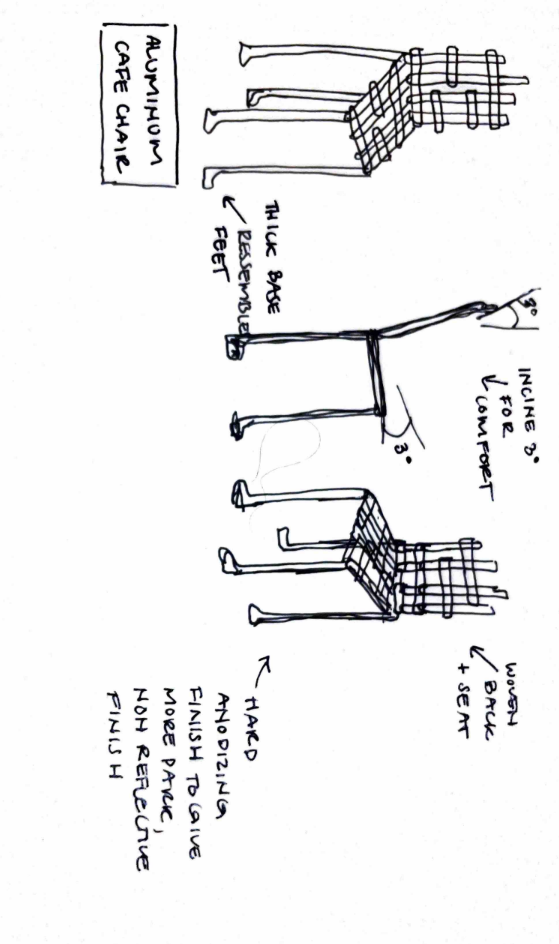 INCLINE 3°
FOR
COMFORT
WOVEN
BACK
+ SEAT
3°
THICK BASE
RESSEMBLE
FEET
HARD
ANODIZING
FINISH TO GIVE
MORE DARK,
NON REFLECTIVE
FINISH
ALUMINUM
CAFE CHAIR